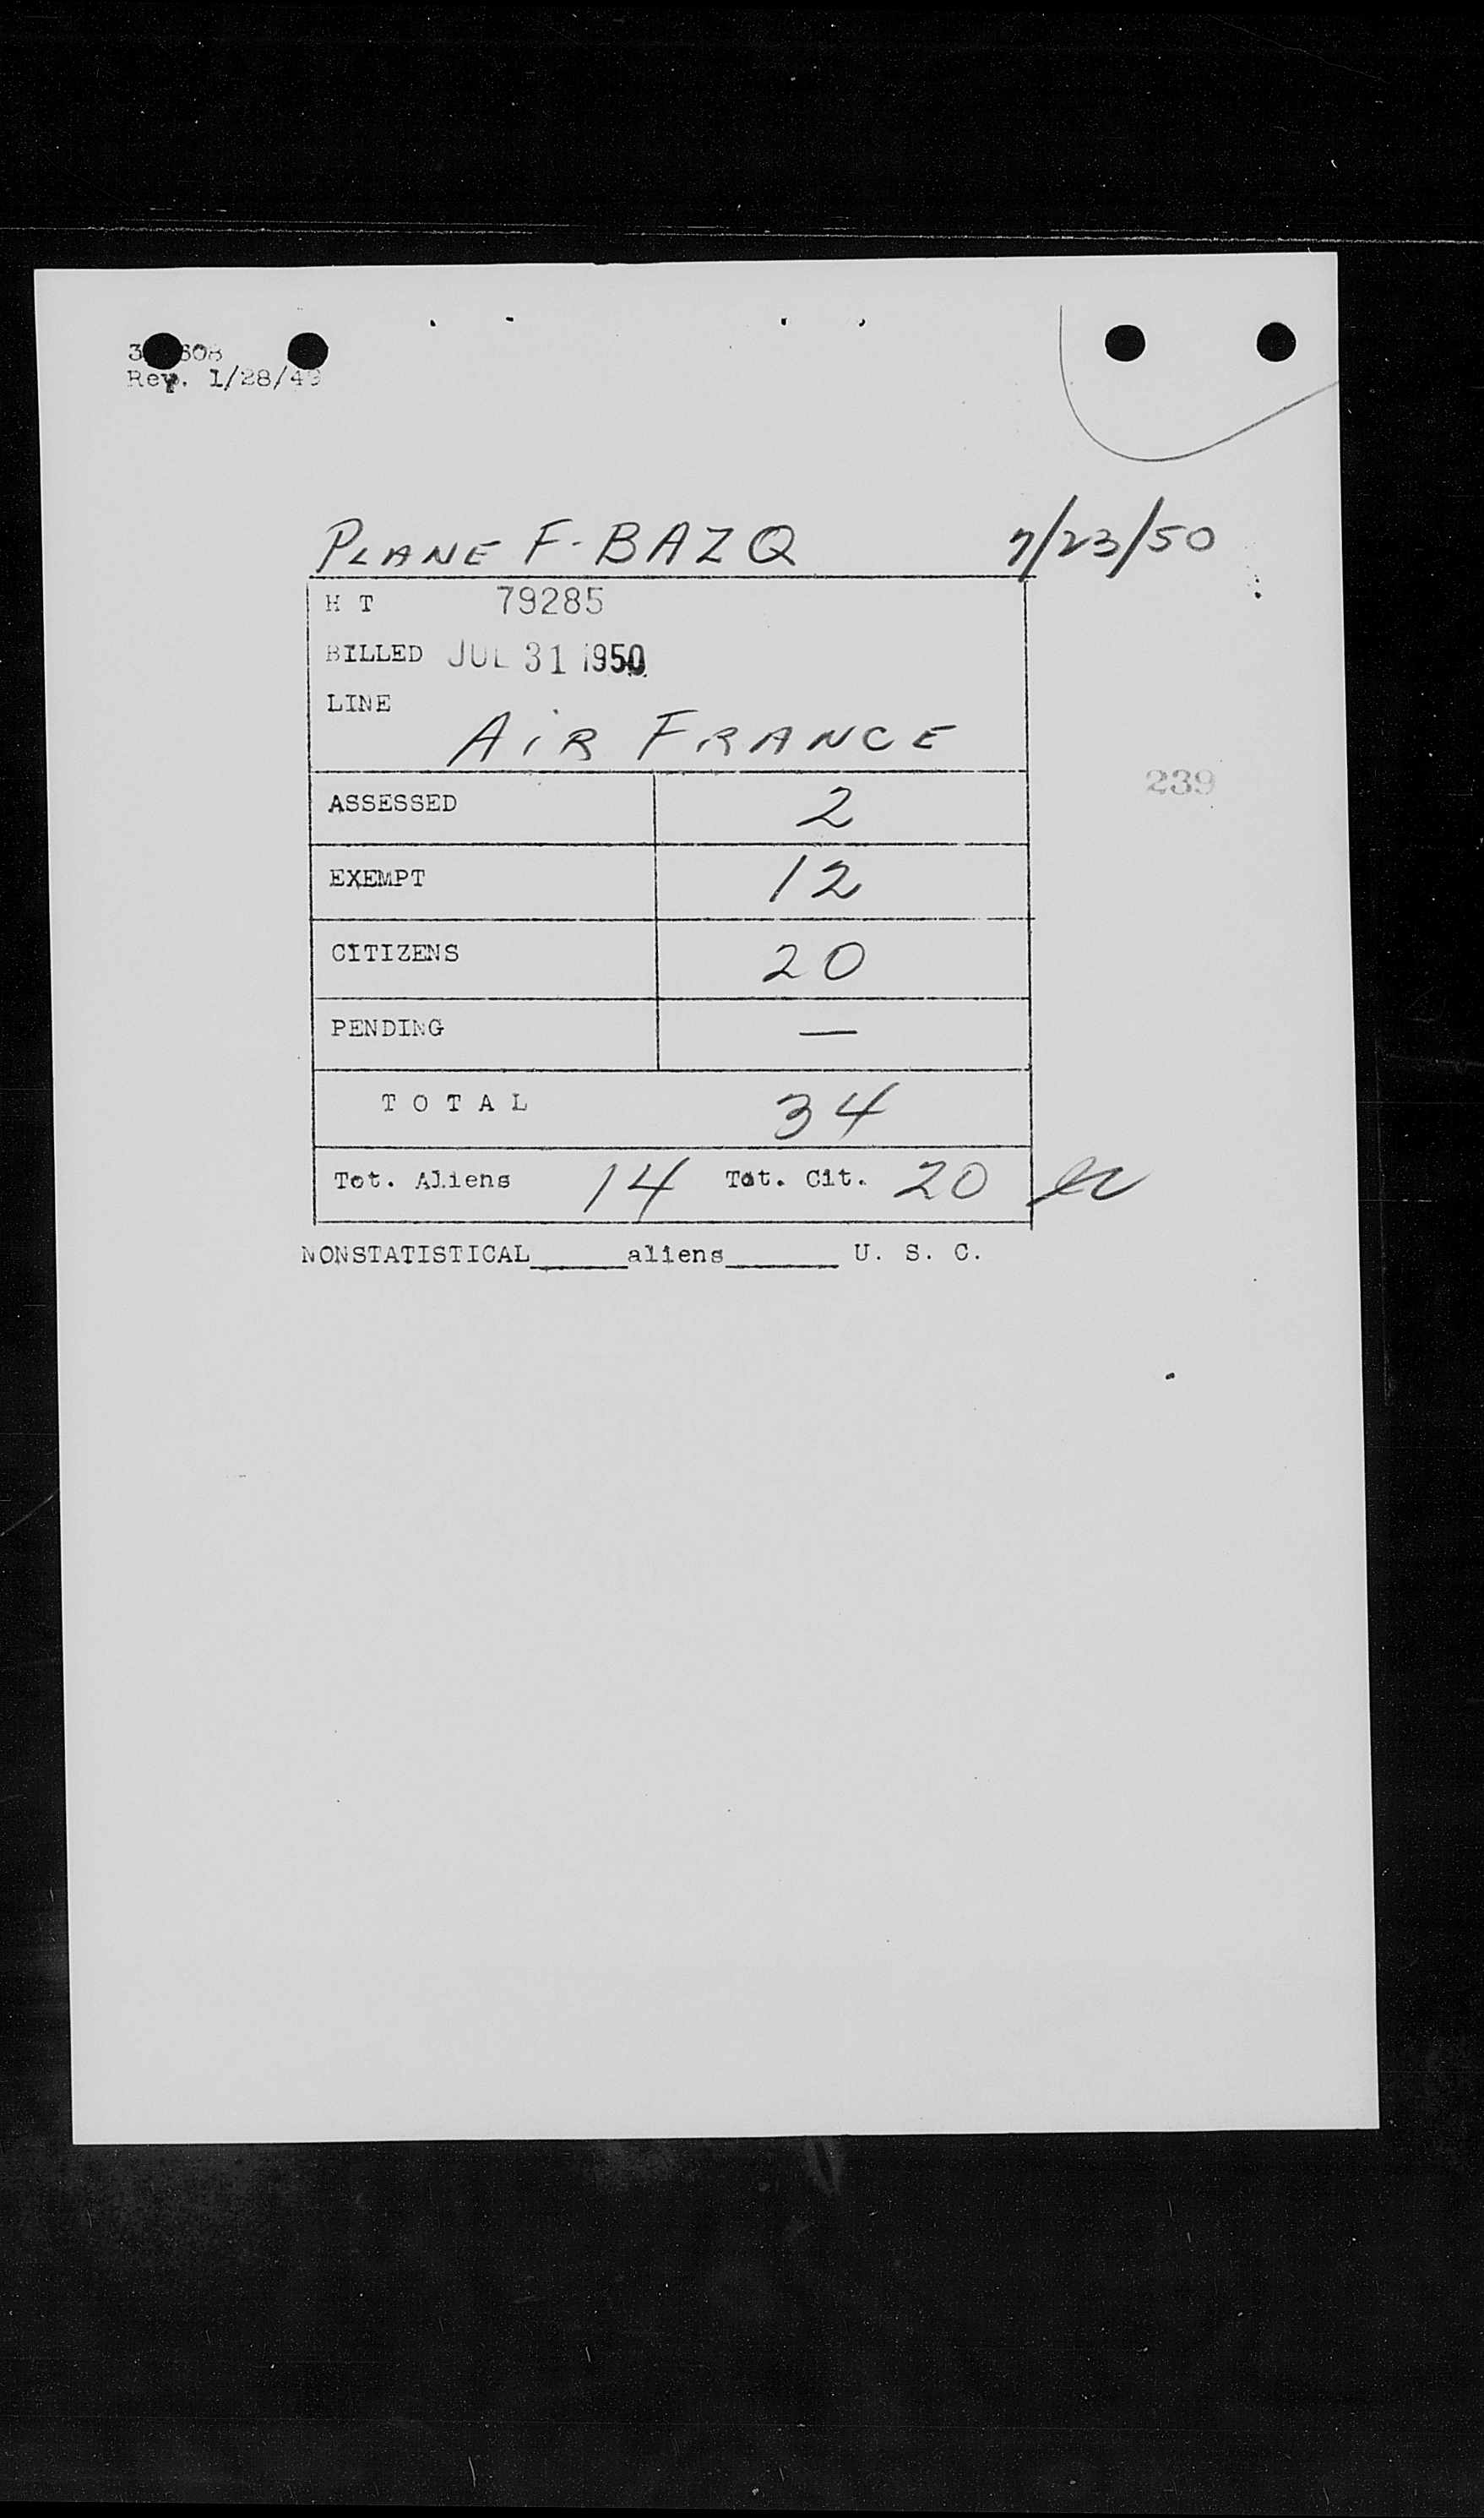 Rev. 1/28/49
PLANE F-BAZQ 7/23/50
H T 79285
BILLED JUL 31 1950
LINE
AIR FRANCE
239
ASSESSED 2
EXEMPT 12
CITIZENS 20
PENDING —
T O T A L 34
Tot. Aliens 14 Tot. Cit. 20
NONSTATISTICAL_____aliens______ U. S. C.